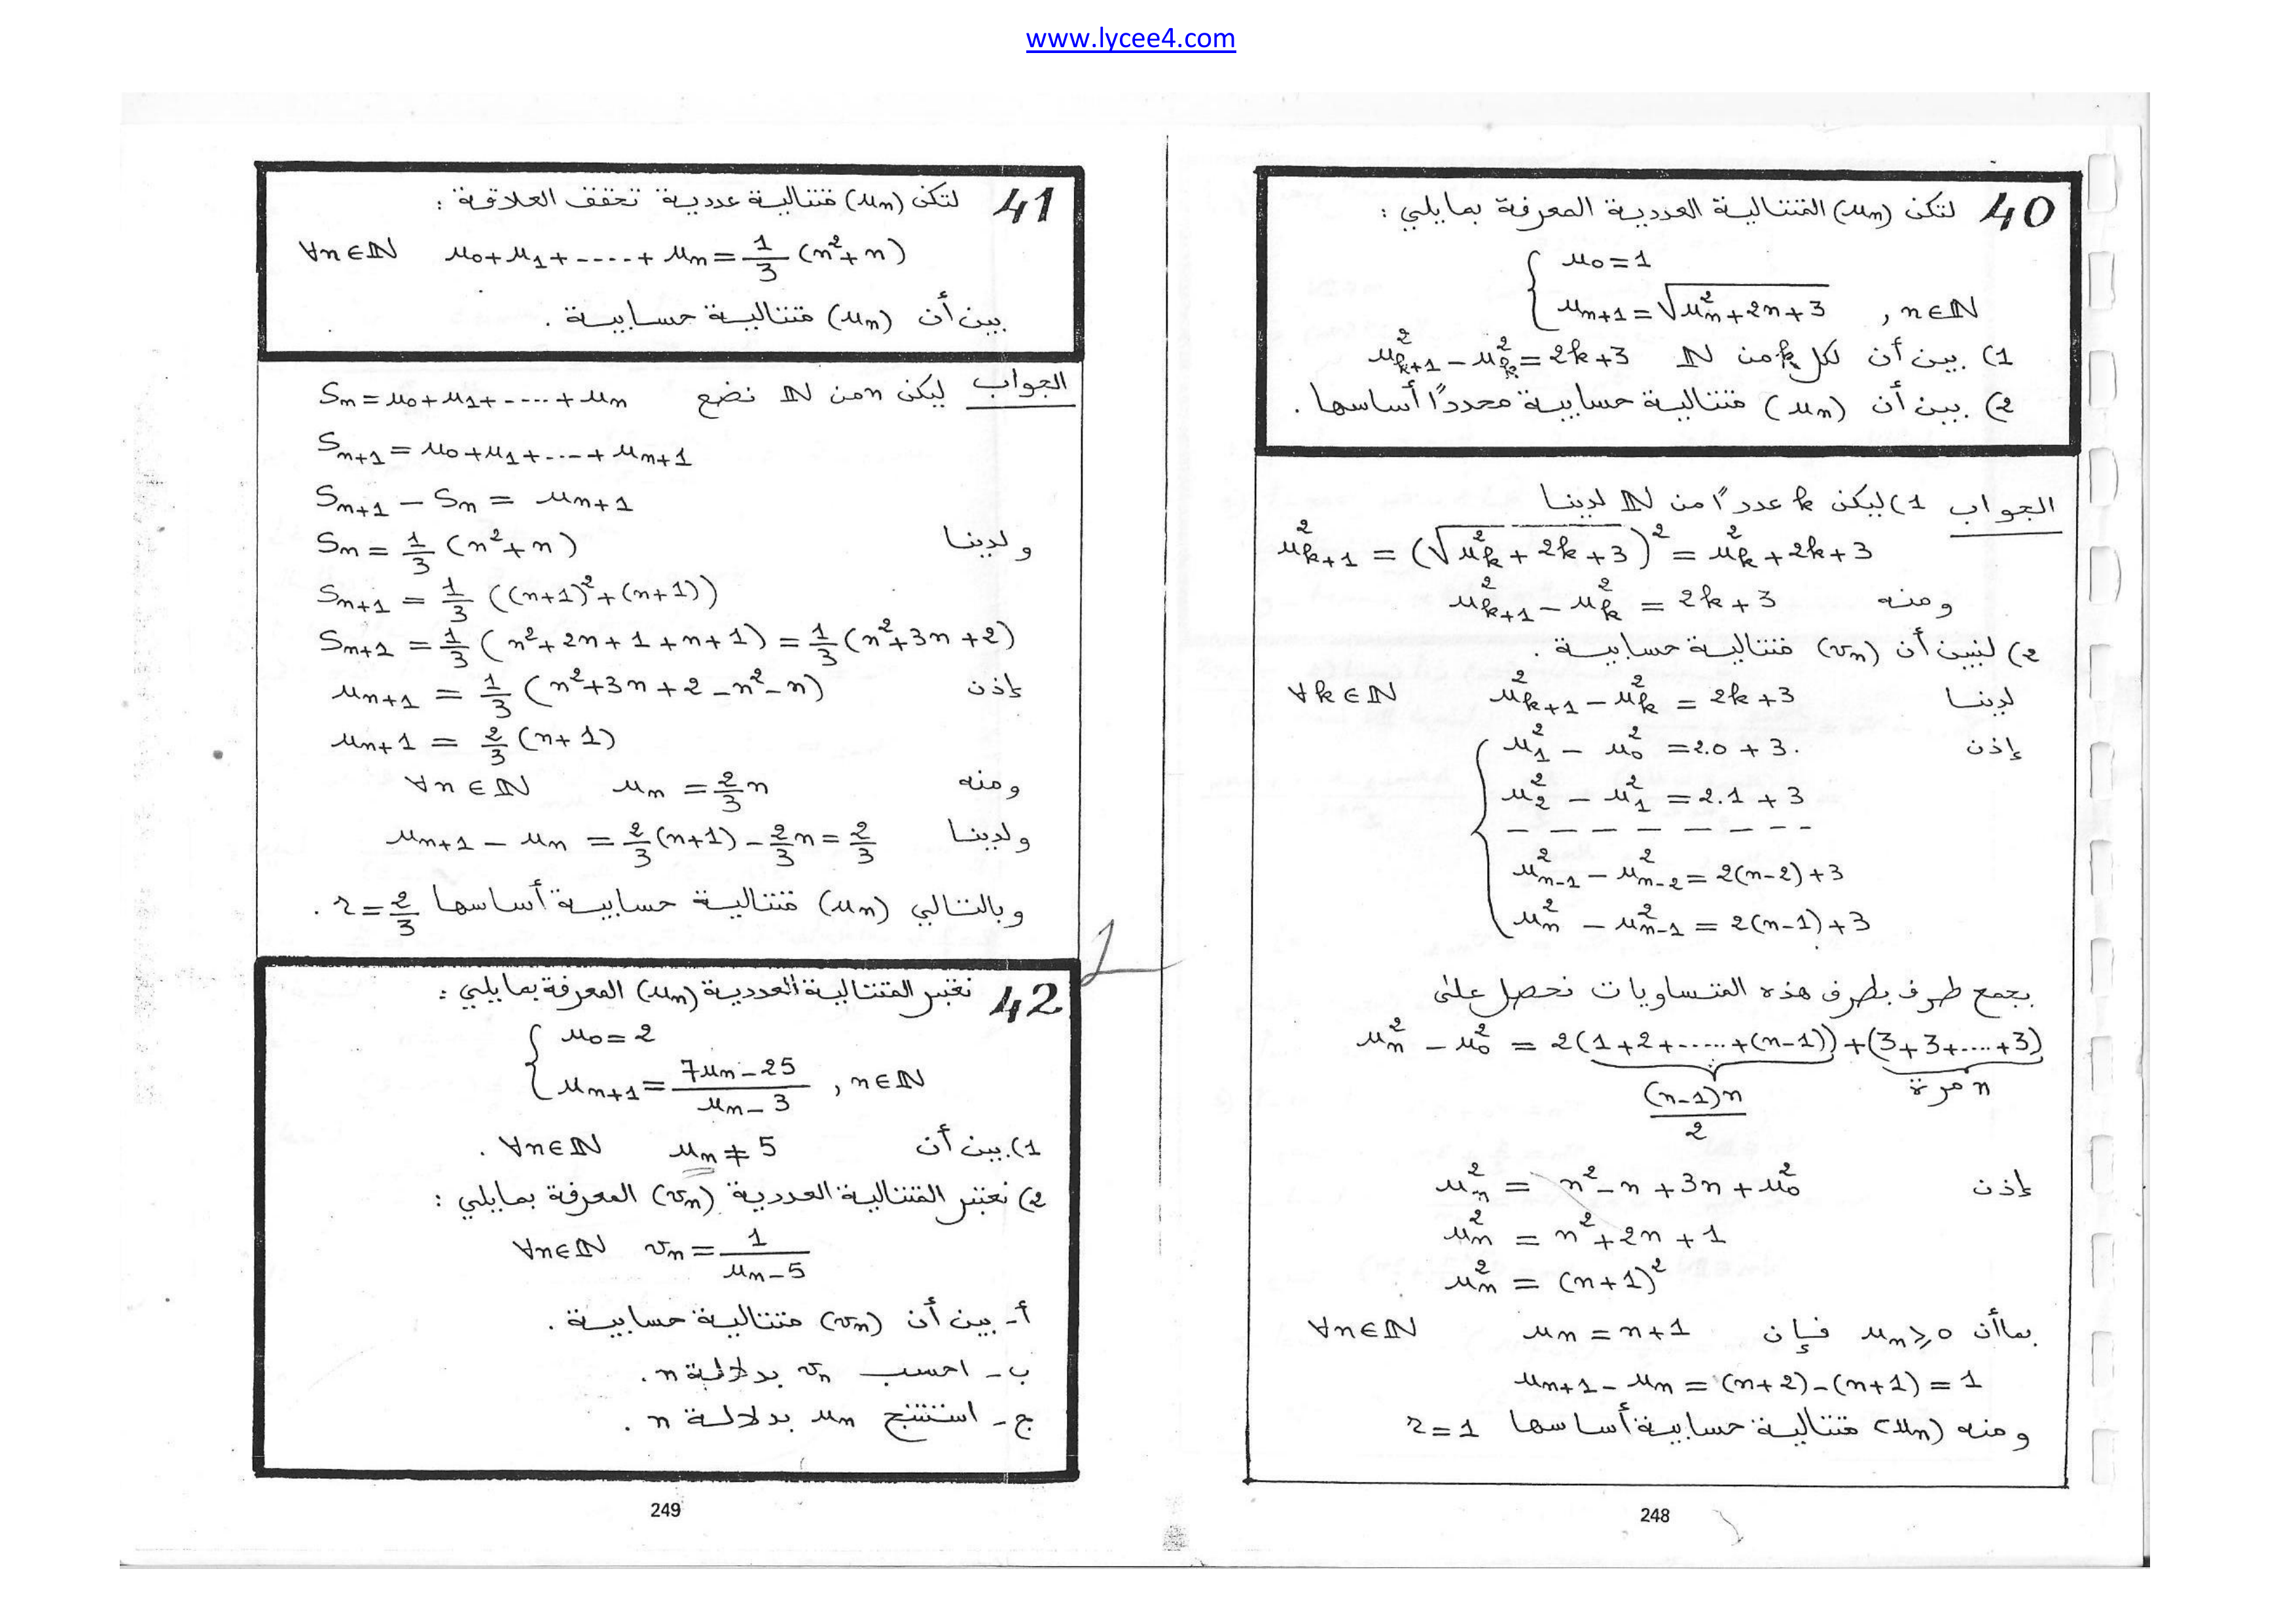 www.lycee4.com
40 لتكن (un) المتتالية العددية المعرفة بمايلي :
u0 = 1
un+1 = √(un² + 2n + 3) , n ∈ ℕ
1) بين أن لكل k من ℕ uk+1² - uk² = 2k + 3
2) بين أن (un) متتالية حسابية محددًا أساسها .
الجواب 1) ليكن k عددًا من ℕ لدينا
uk+1² = (√(uk² + 2k + 3))² = uk² + 2k + 3
ومنه uk+1² - uk² = 2k + 3
2) لنبين أن (vn) متتالية حسابية .
لدينا uk+1² - uk² = 2k + 3 ∀k ∈ ℕ
إذن u1² - u0² = 2.0 + 3.
u2² - u1² = 2.1 + 3
- - - - - - - - -
un-1² - un-2² = 2(n-2) + 3
un² - un-1² = 2(n-1) + 3
بجمع طرف بطرف هذه المتساويات نحصل على
un² - u0² = 2(1+2+......+(n-1)) + (3+3+....+3)
(n-1)n/2 n مرة
إذن un² = n² - n + 3n + u0²
un² = n² + 2n + 1
un² = (n+1)²
بما أن un ⩾ 0 فإن un = n+1 ∀n ∈ ℕ
un+1 - un = (n+2) - (n+1) = 1
ومنه (un) متتالية حسابية أساسها r = 1
248
41 لتكن (un) متتالية عددية تحقق العلاقة :
∀n ∈ ℕ u0 + u1 + ..... + un = 1/3 (n² + n)
بين أن (un) متتالية حسابية .
الجواب ليكن n من ℕ نضع Sn = u0 + u1 + ..... + un
Sn+1 = u0 + u1 + ..... + un+1
Sn+1 - Sn = un+1
ولدينا Sn = 1/3 (n² + n)
Sn+1 = 1/3 ((n+1)² + (n+1))
Sn+1 = 1/3 (n² + 2n + 1 + n + 1) = 1/3 (n² + 3n + 2)
إذن un+1 = 1/3 (n² + 3n + 2 - n² - n)
un+1 = 2/3 (n+1)
ومنه un = 2/3 n ∀n ∈ ℕ
ولدينا un+1 - un = 2/3 (n+1) - 2/3 n = 2/3
وبالتالي (un) متتالية حسابية أساسها r = 2/3 .
42 نعتبر المتتالية العددية (un) المعرفة بمايلي :
u0 = 2
un+1 = (7un - 25)/(un - 3) , n ∈ ℕ
1) بين أن un ≠ 5 ∀n ∈ ℕ .
2) نعتبر المتتالية العددية (vn) المعرفة بمايلي :
∀n ∈ ℕ vn = 1/(un - 5)
أ- بين أن (vn) متتالية حسابية .
ب- احسب vn بدلالة n .
ج- استنتج un بدلالة n .
249